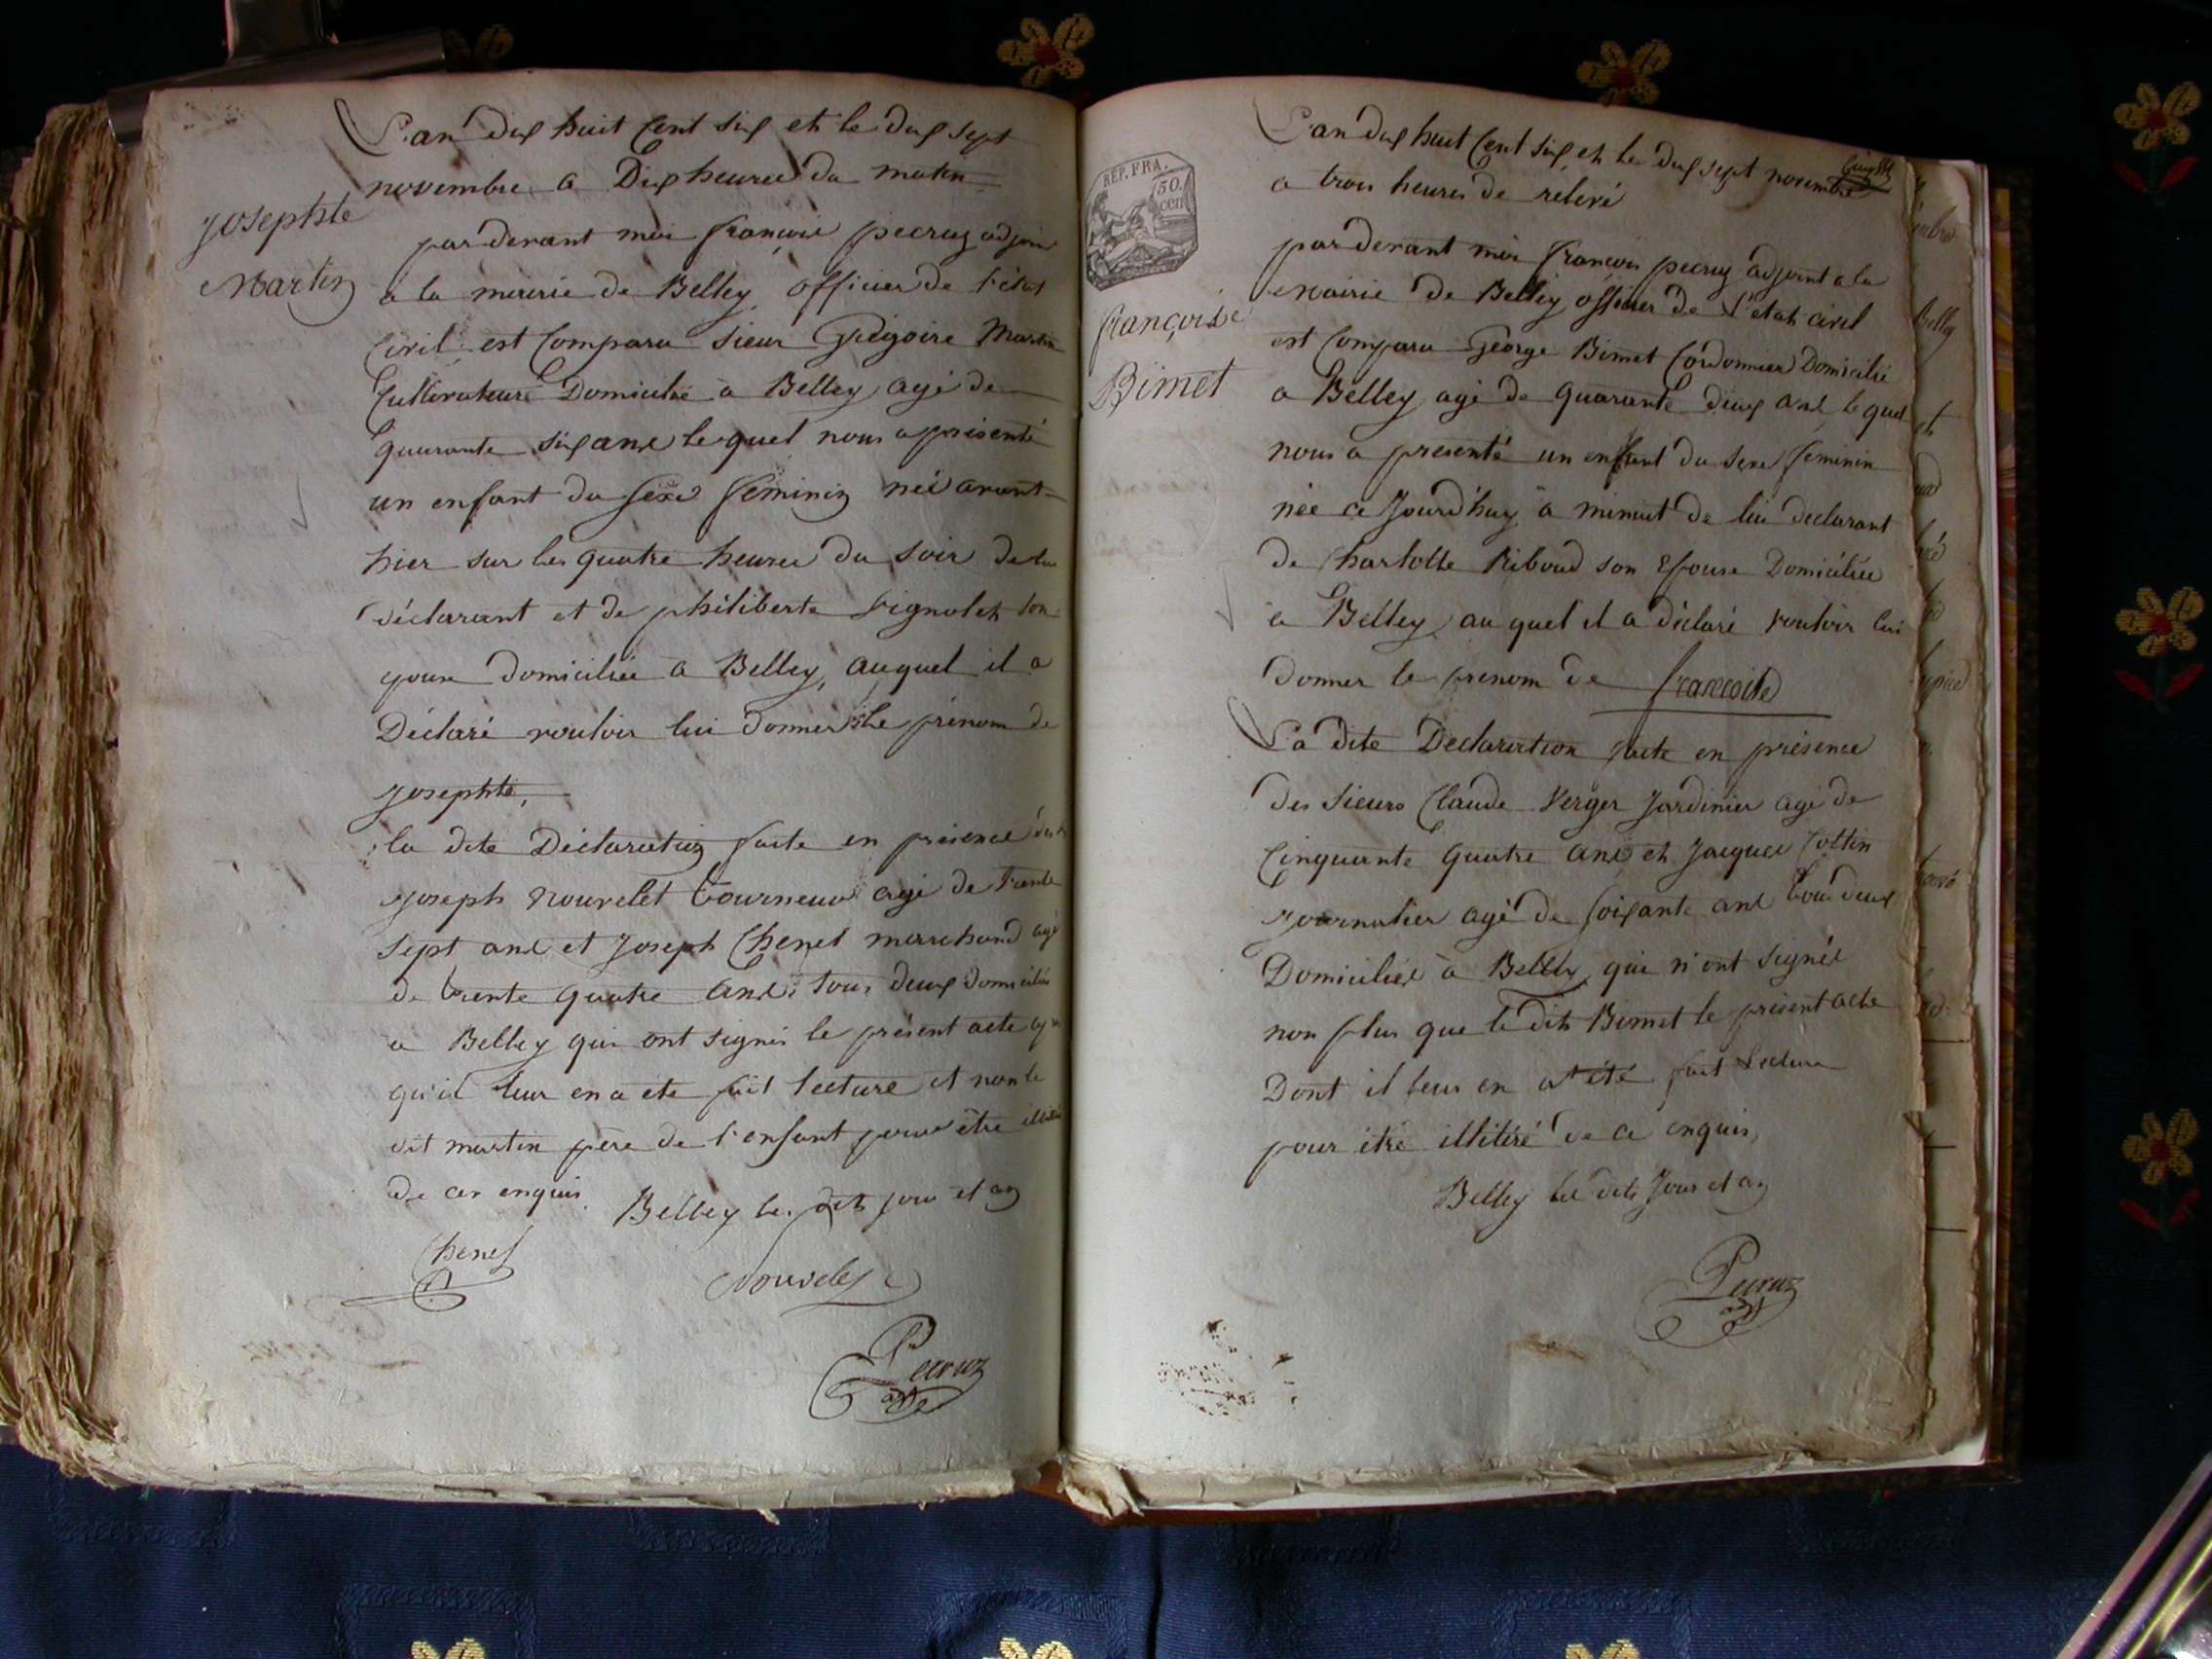 L'an dix huit Cent six et le dix sept
novembre a Dix heures du maten
Josephte
Martin
par devant moi françois pecruz adjoin
a la mairie de Belley officier de l'état
Civil est Comparu sieur Grégoire Martin
Cultivateur Domicilié a Belley agé de
quarante six ans le quel nous a présenté
un enfant du sexe feminin née avant
hier sur les quatre heures du soir de lui
déclarant et de philiberte son
domiciliée a Belley, auquel il a
Déclaré vouloir lui donner le prénom de
Josephte,
la dite Déclaration faite en présence des
joseph nouvelet tourneur agé de trente
sept ans et Joseph Chenel marchand agé
de trente quatre ans tous deux domiciliés
a Belley qui ont signés le présent acte
qu'il leur en a eté fait lecture et non le
dit martin père de l'enfant pour être
de ce enquis. Belley les dits jour et an
Chenel
Nouvelet
Pecruz
adj
REP. FRA.
50.
cen
L'an dix huit Cent six et le dix sept novembre
a trois heures de relevé
françoise
Bimet
par devant moi françois pecruz adjoint a la
mairie de Belley officier de L'état civil
est Comparu George Bimet Cordonnier Domicilié
a Belley agé de quarante deux ans le quel
nous a presenté un enfant du sexe feminin
née ce Jourd'huy a minuit de lui declarant
de Charlotte Riboud son Epouse Domiciliée
a Belley, au quel il a déclaré vouloir lui
donner le prenom de francoise
La dite Declaration faite en présence
des sieurs Claude Verger Jardinier agé de
Cinquante quatre ans et Jacques Cottin
journalier agé de soixante ans tous deux
Domiciliés a Belley qui n'ont signés
non plus que le dit Bimet le présent acte
Dont il leur en a été fait Lecture
pour être illitéré de ce enquis,
Belley les dits Jour et an
Pecruz
adj